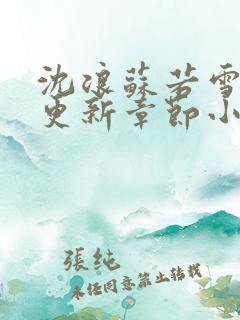 沈浪蘇若雪
更新章節小
張純
未經同意禁止轉載